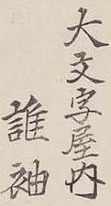 大文字屋内
誰袖